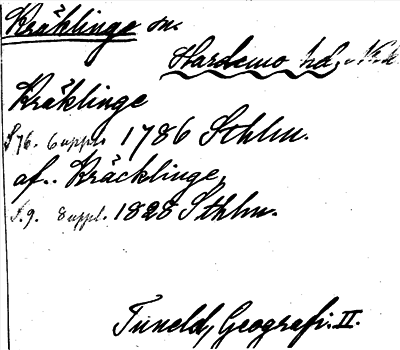 Kräklinge sn.
Hardemo hd, Nke
Kräklinge
S 76. 6 uppl. 1786 Sthlm.
af.. Kräcklinge,
S. 9. 8 uppl. 1828 Sthlm.
Tuneld, Geografi. II.